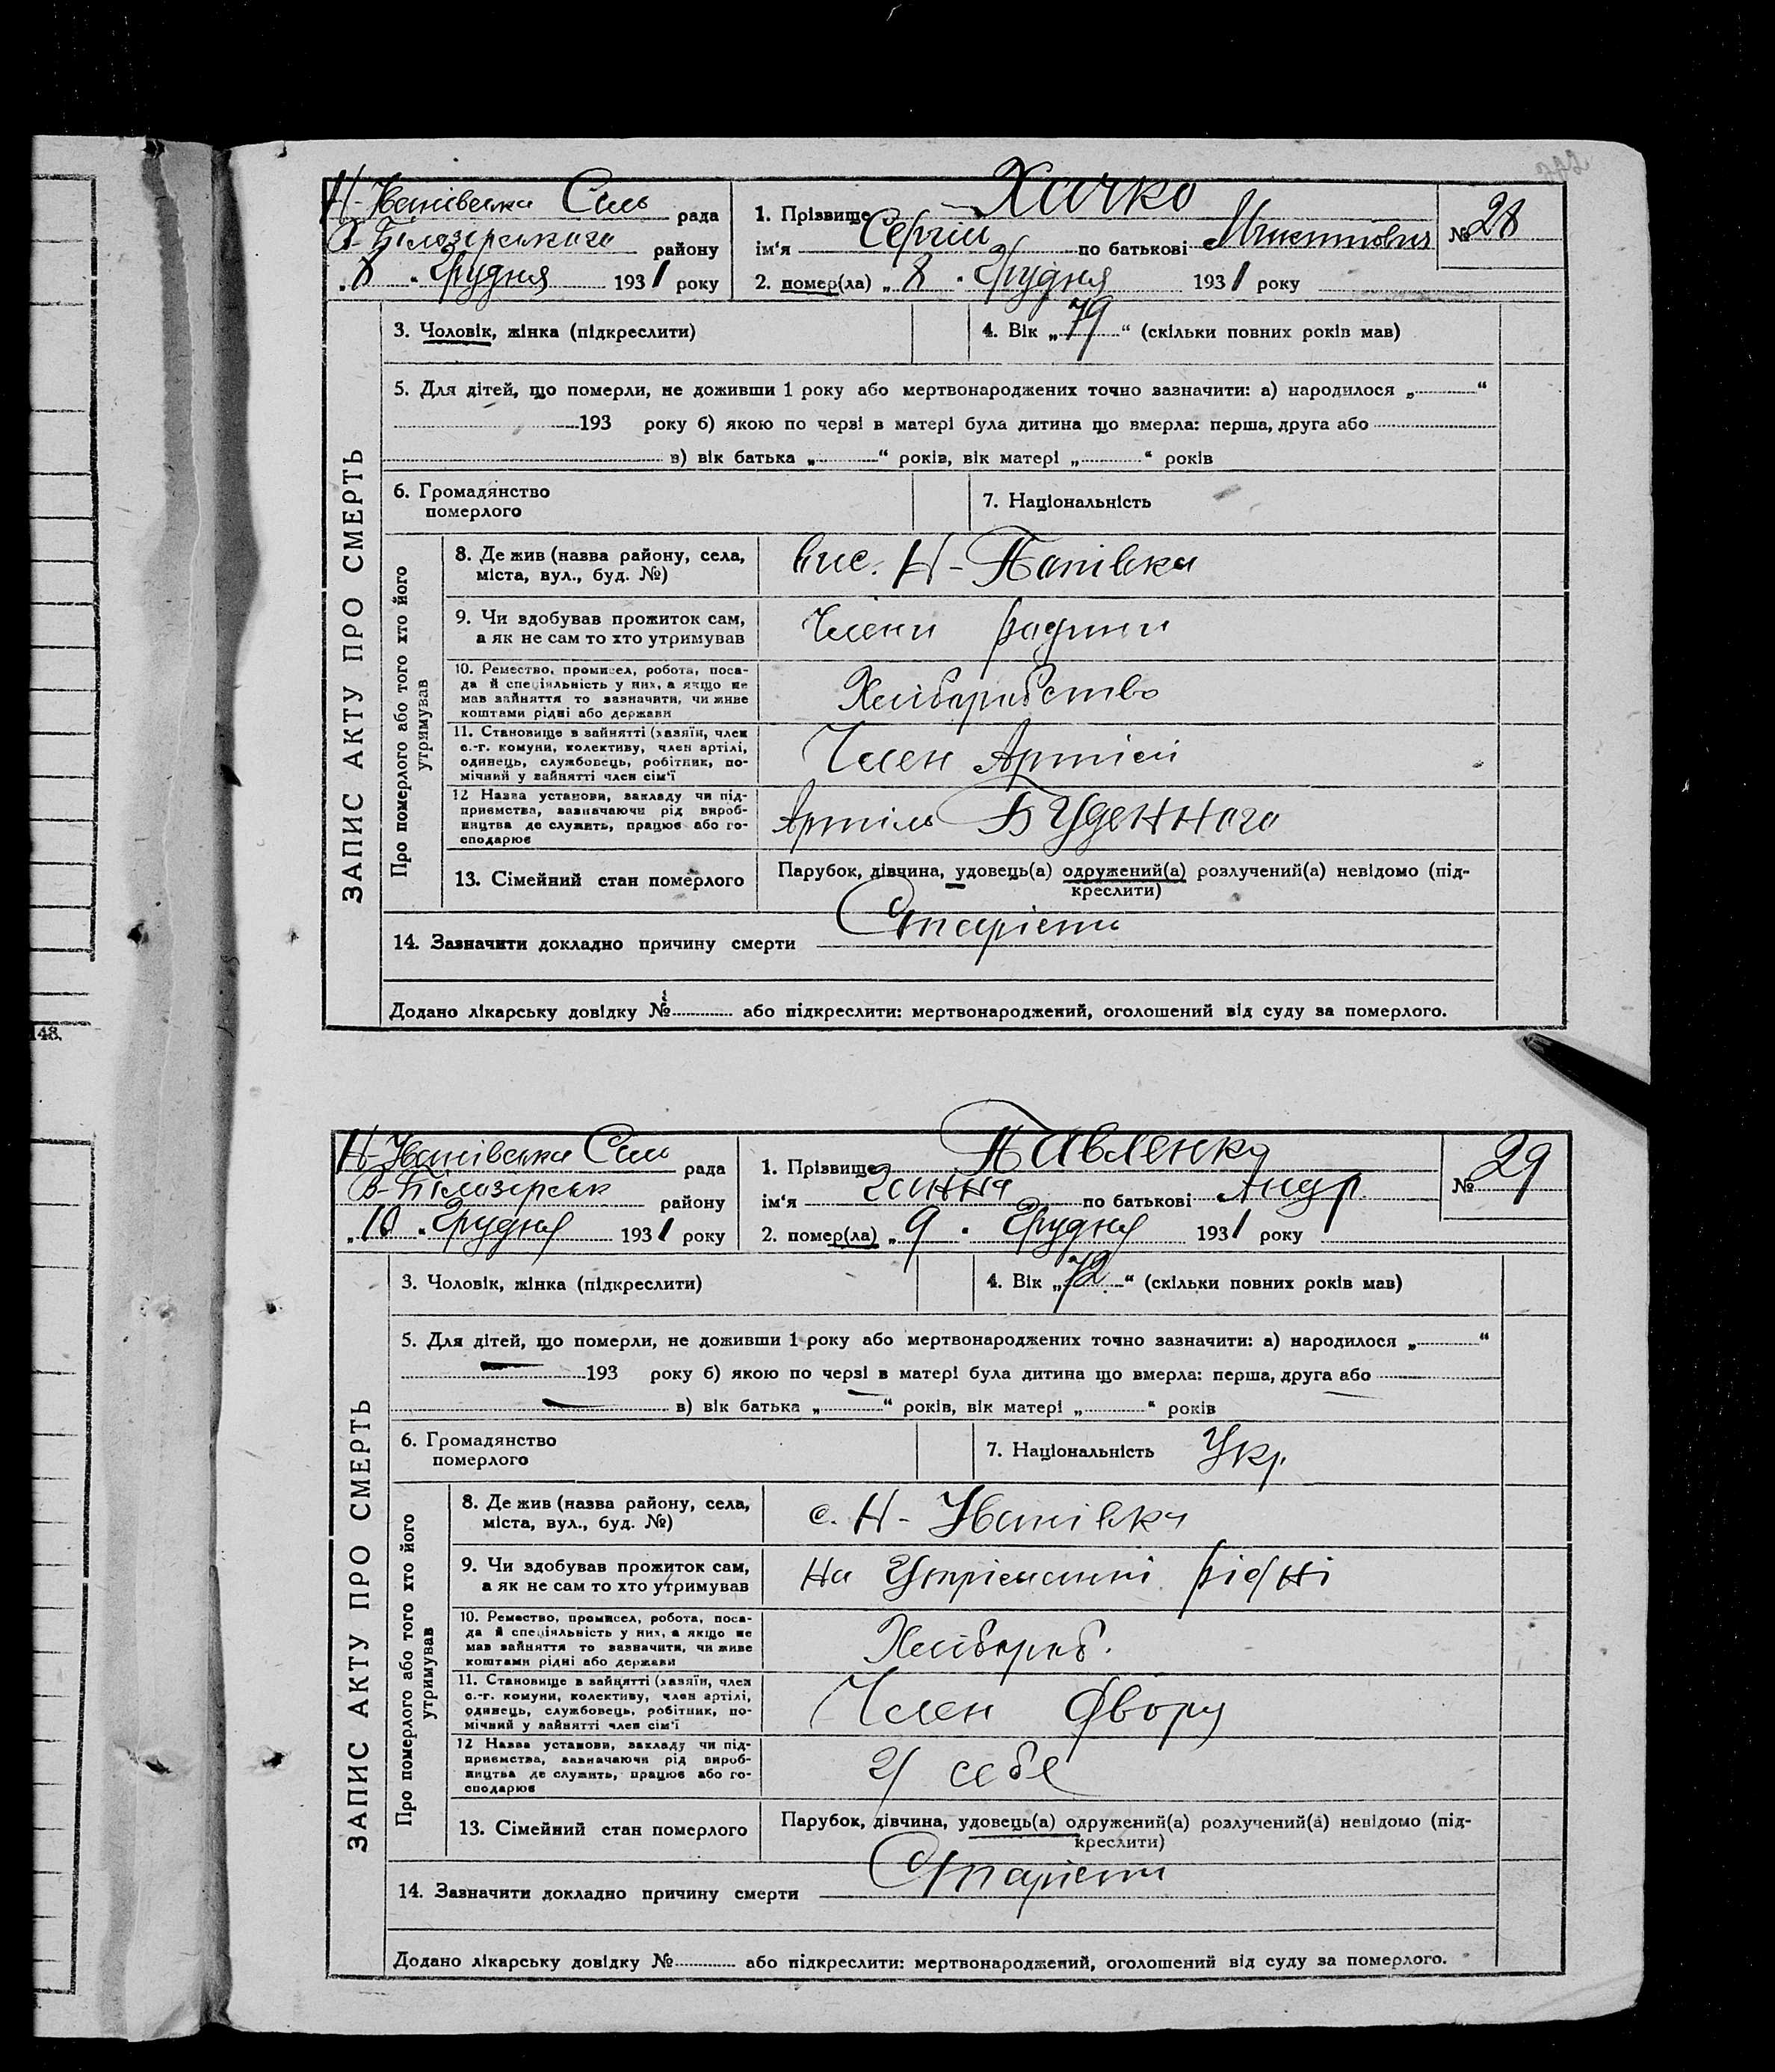 Н-Іванівська Силь рада
В-Білозірського району
„8“ Грудня 1931 року
1. Прізвище Хачко
ім‘я Сергій по батькові Микитович
№ 28
2. помер(ла) „8“ Грудня 1931 року
3. Чоловік, жінка (підкреслити)
4. Вік „79“ (скільки повних років мав)
5. Для дітей, що померли, не доживши 1 року або мертвонароджених точно зазначити: а) народилося „ “
193 року б) якою по черзі в матері була дитина що вмерла: перша, друга або
в) вік батька „ “ років, вік матері „ “ років
6. Громадянство
померлого
7. Національність
ЗАПИС АКТУ ПРО СМЕРТЬ
Про померлого або того хто його
утримував
8. Де жив (назва району, села,
міста, вул., буд. №)
вис. Н-Панівка
9. Чи здобував прожиток сам,
а як не сам то хто утримував
Члени родини
10. Ремество, промисел, робота, поса-
да й спеціяльність у них, а якщо не
мав зайняття то зазначити, чи живе
коштами рідні або держави
Хліборобство
11. Становище в зайнятті (хазяїн, член
с.-г. комуни, колективу, член артілі,
одинець, службовець, робітник, по-
мічний у зайнятті член сім‘ї
Член Артілі
12 Назва установи, закладу чи під-
приємства, зазначаючи рід вироб-
ництва де служить, працює або го-
сподарює
Артіль Буденного
13. Сімейний стан померлого
Парубок, дівчина, удовець(а) одружений(а) розлучений(а) невідомо (під-
креслити)
14. Зазначити докладно причину смерти Старість
Додано лікарську довідку № або підкреслити: мертвонароджений, оголошений від суду за померлого.
148.
Н-Іванівська Силь рада
В-Білозірськ району
„10“ Грудня 1931 року
1. Прізвище Павленко
ім‘я Ганна по батькові Андр.
№ 29
2. помер(ла) „9“ Грудня 1931 року
3. Чоловік, жінка (підкреслити)
4. Вік „72“ (скільки повних років мав)
5. Для дітей, що померли, не доживши 1 року або мертвонароджених точно зазначити: а) народилося „ “
193 року б) якою по черзі в матері була дитина що вмерла: перша, друга або
в) вік батька „ “ років, вік матері „ “ років
6. Громадянство
померлого
7. Національність Укр.
ЗАПИС АКТУ ПРО СМЕРТЬ
Про померлого або того хто його
утримував
8. Де жив (назва району, села,
міста, вул., буд. №)
с. Н-Іванівка
9. Чи здобував прожиток сам,
а як не сам то хто утримував
На Утріманні рідні
10. Ремество, промисел, робота, поса-
да й спеціяльність у них, а якщо не
мав зайняття то зазначити, чи живе
коштами рідні або держави
Хлібороб.
11. Становище в зайнятті (хазяїн, член
с.-г. комуни, колективу, член артілі,
одинець, службовець, робітник, по-
мічний у зайнятті член сім‘ї
Член Двору
12 Назва установи, закладу чи під-
приємства, зазначаючи рід вироб-
ництва де служить, працює або го-
сподарює
У себе
13. Сімейний стан померлого
Парубок, дівчина, удовець(а) одружений(а) розлучений(а) невідомо (під-
креслити)
14. Зазначити докладно причину смерти Старість
Додано лікарську довідку № або підкреслити: мертвонароджений, оголошений від суду за померлого.